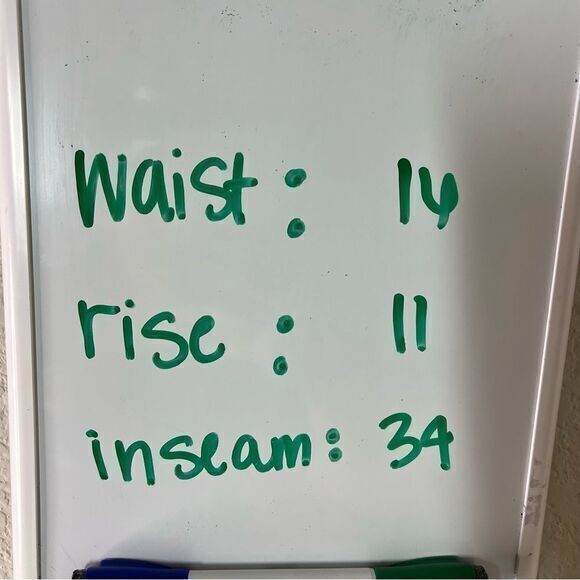 Waist: 16
rise: 11
inseam: 34